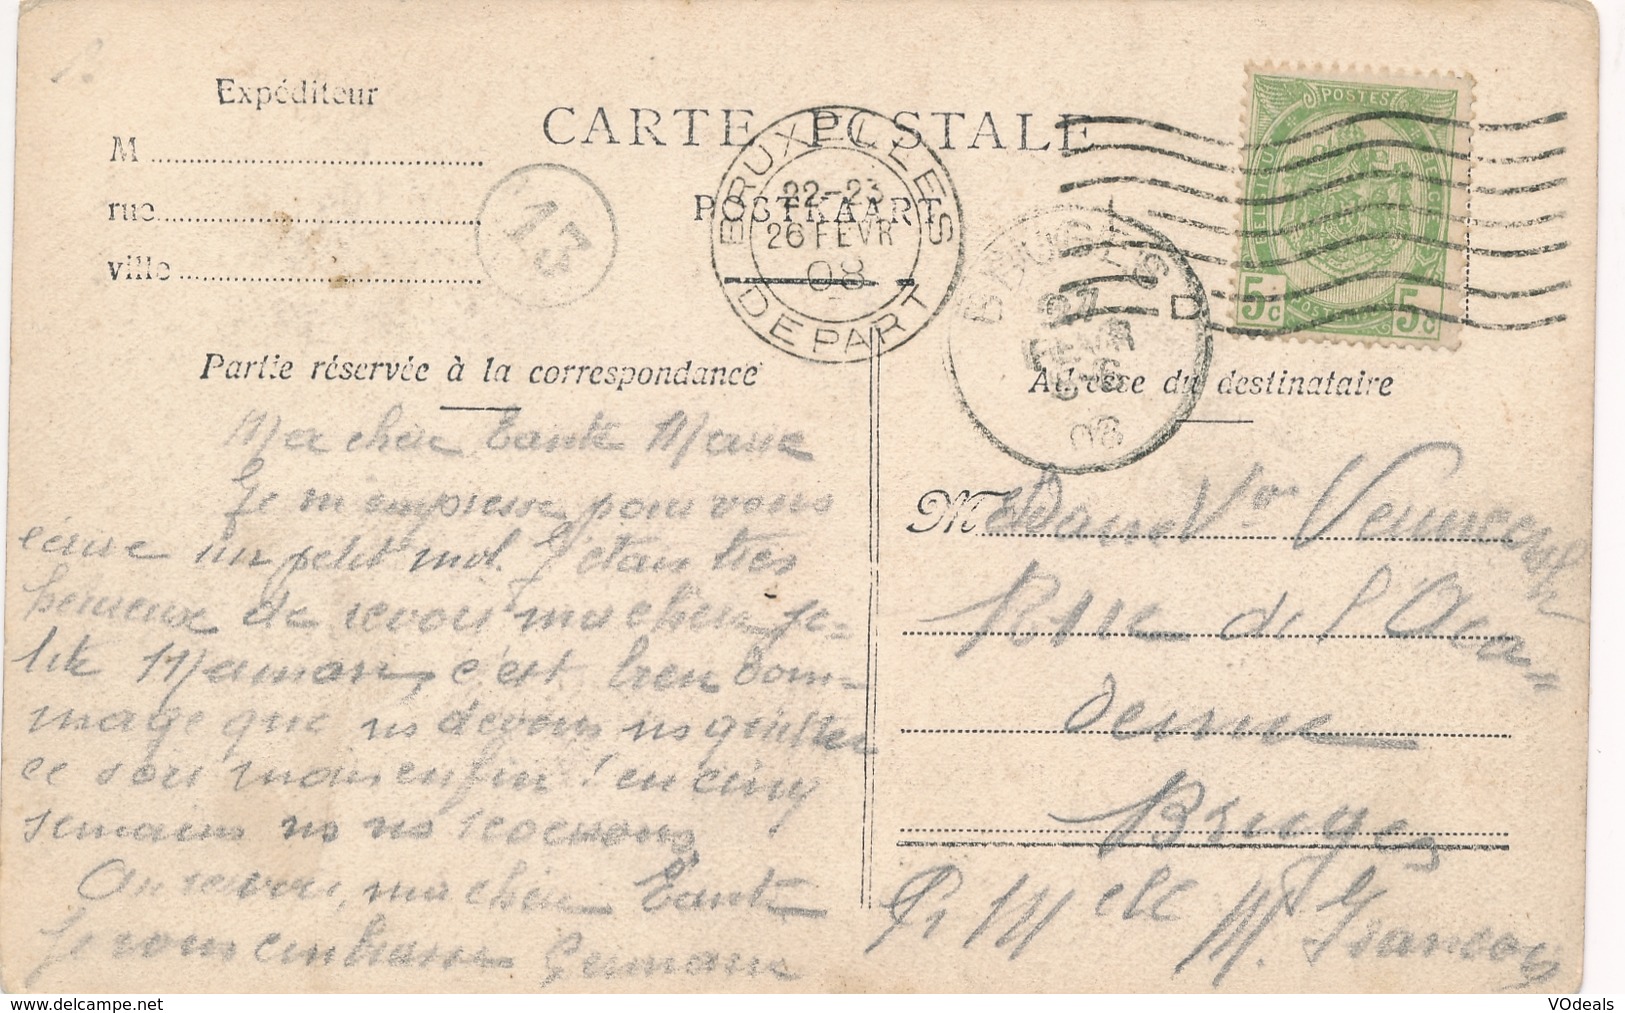 Expéditeur
M
rue
ville
13
CARTE POSTALE
POSTKAART
BRUXELLES
22-23
26 FEVR
08
DEPART
BRUGES
27
FEVR
08
POSTES
BELGIQUE
5c 5c
Partie réservée à la correspondance
Adresse du destinataire
Ma chère Tante Marie
Je m'empresse pour vous
écrire un petit mot. J'étais très
heureuse de revoir ma chère pe-
tite Maman, c'est bien dom-
mage que ns devons ns quitter
ce soir mais enfin ! en cinq
semaines ns ns reverrons
Au revoir, ma chère Tante
Je vous embrasse Germaine
Madame Vve
Rue de l'Aca-
démie
Bruges
Pr Melle M. François
VOdeals